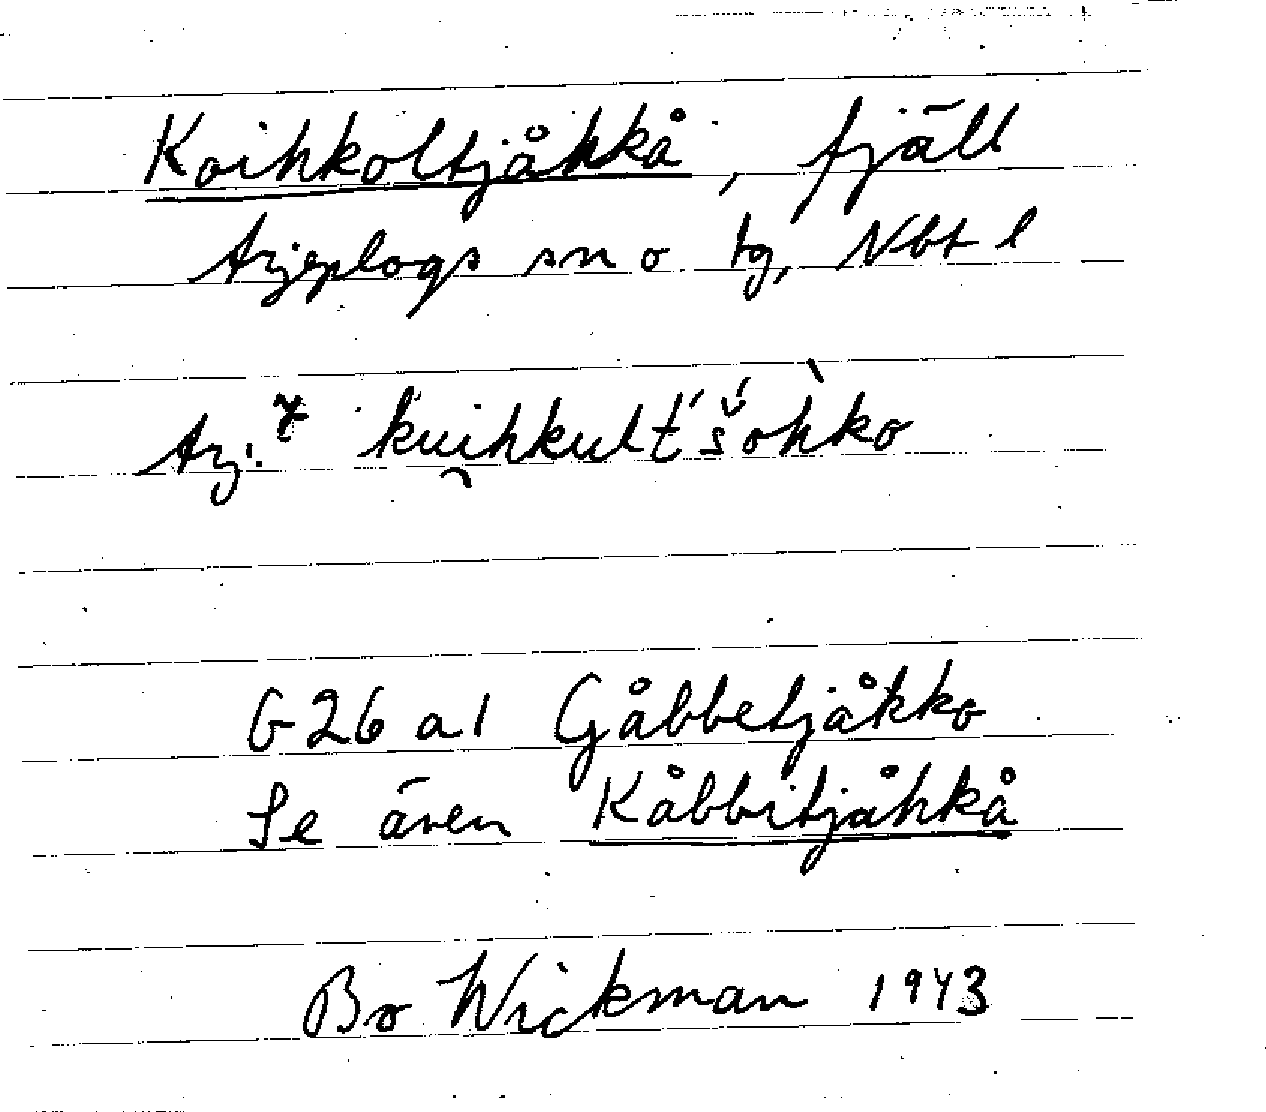 Koihkoltjåhkå, fjäll
Arjeplogs sn o tg, Nbt l
Arj. kuihkult́'š́ohko
G26 a1 Gåbbetjåkko
Se även Kåbbitjåhkå
Bo Wickman 1943